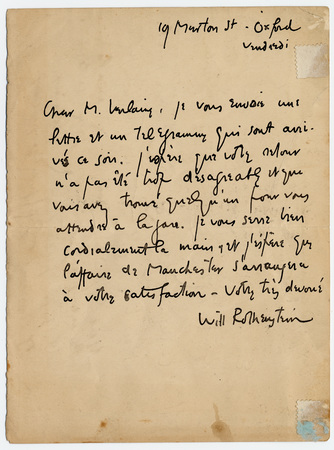 19 Merton St - Oxford
Vendredi
Cher M. Verlaine, je vous envoie une
lettre et un telegramme qui sont arri-
vés ce soir. j'espère que votre retour
n'a pas été trop desagreable et que
vous avez trouvé quelqu'un pour vous
attendre à la gare. je vous serre bien
cordialement la main, et j'espère que
l'affaire de Manchester s'arrangera
à votre satisfaction - Votre très devoué
Will Rothenstein